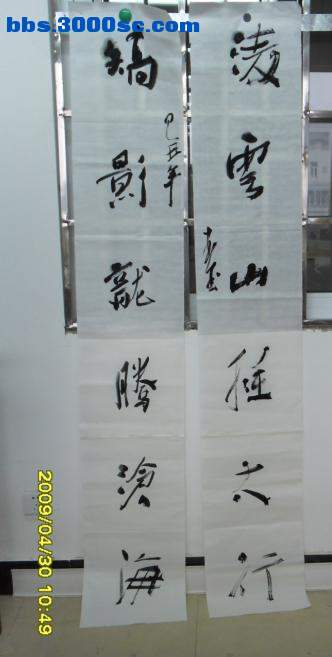 bbs.3000sc.com
凌雲山太行
矯影龍騰滄海
己丑年
2009/04/30 10:49